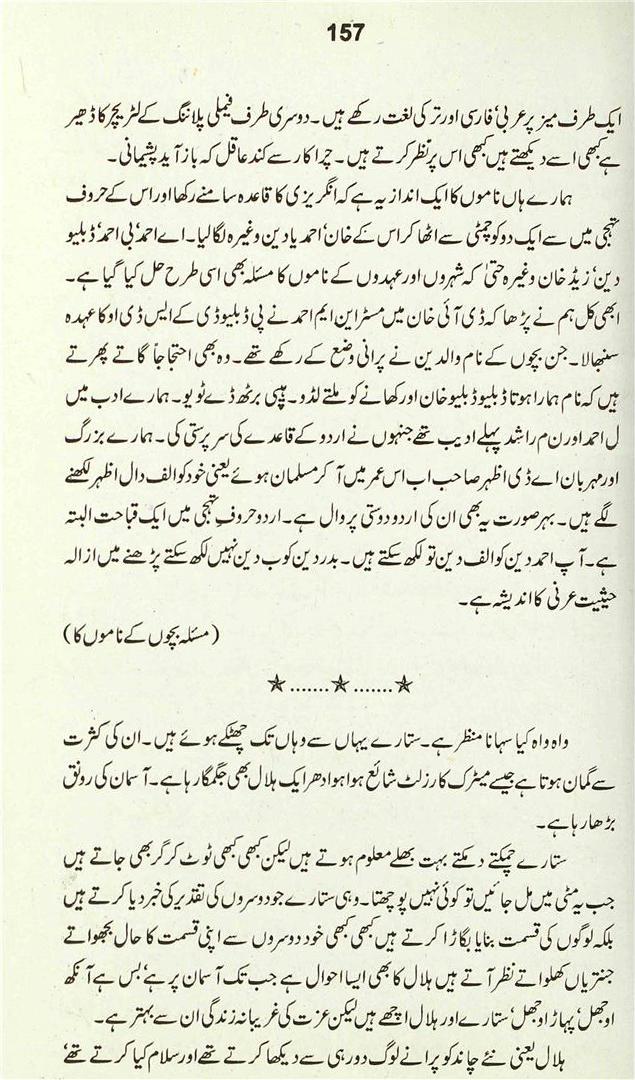 157
ایک طرف میز پر عربی' فارسی اور ترکی لغت رکھے ہیں۔ دوسری طرف فیملی پلاننگ کے لٹریچر کا ڈھیر
ہے کبھی اسے دیکھتے ہیں کبھی اس پر نظر کرتے ہیں۔ چرا کارے کند عاقل کہ باز آید پشیمانی۔
ہمارے ہاں ناموں کا ایک انداز یہ ہے کہ انگریزی کا قاعدہ سامنے رکھا اور اس کے حروف
تہجی میں سے ایک دو کو چمٹی سے اٹھا کر اس کے خان' احمد یا دین وغیرہ لگا لیا۔ اے احمد' بی احمد' ڈبلیو
دین' زیڈ خان وغیرہ حتیٰ کہ شہروں اور عہدوں کے ناموں کا مسئلہ بھی اسی طرح حل کیا گیا ہے۔
ابھی کل ہم نے پڑھا کہ ڈی آئی خان میں مسٹر این ایم احمد نے پی ڈبلیو ڈی کے ایس ڈی او کا عہدہ
سنبھالا۔ جن بچوں کے نام والدین نے پرانی وضع کے رکھے تھے۔ وہ بھی احتجاجاً گاتے پھرتے
ہیں کہ نام ہمارا ہوتا ڈبلیو ڈبلیو خان اور کھانے کو ملتے لڈو۔ ہیپی برتھ ڈے ٹو یو۔ ہمارے ادب میں
ل احمد اور ن م راشد پہلے ادیب تھے جنہوں نے اردو کے قاعدے کی سرپرستی کی۔ ہمارے بزرگ
اور مہربان اے ڈی اظہر صاحب اب اس عمر میں آ کر مسلمان ہوئے یعنی خود کو الف دال اظہر لکھنے
لگے ہیں۔ بہر صورت یہ بھی ان کی اردو دوستی پر دال ہے۔ اردو حروفِ تہجی میں ایک قباحت البتہ
ہے۔ آپ احمد دین کو الف دین تو لکھ سکتے ہیں۔ بدر دین کو ب دین نہیں لکھ سکتے پڑھنے میں ازالہ
حیثیت عرفی کا اندیشہ ہے۔
(مسئلہ بچوں کے ناموں کا)
★.......★.......★
واہ واہ کیا سہانا منظر ہے۔ ستارے یہاں سے وہاں تک چھٹکے ہوئے ہیں۔ ان کی کثرت
سے گمان ہوتا ہے جیسے میٹرک کا رزلٹ شائع ہوا ہو ادھر ایک ہلال بھی جگمگا رہا ہے۔ آسمان کی رونق
بڑھا رہا ہے۔
ستارے چمکتے دمکتے بہت بھلے معلوم ہوتے ہیں لیکن کبھی کبھی ٹوٹ کر گر بھی جاتے ہیں
جب یہ مٹی میں مل جائیں تو کوئی نہیں پوچھتا۔ وہی ستارے جو دوسروں کی تقدیر کی خبر دیا کرتے ہیں
بلکہ لوگوں کی قسمت بنایا بگاڑا کرتے ہیں کبھی کبھی خود دوسروں سے اپنی قسمت کا حال بجھواتے
جنتریاں کھلواتے نظر آتے ہیں ہلال کا بھی ایسا احوال ہے جب تک آسمان پر ہے' بس ہے آنکھ
اوجھل' پہاڑ اوجھل' ستارے اور ہلال اچھے ہیں لیکن عزت کی غریبانہ زندگی ان سے بہتر ہے۔
ہلال یعنی نئے چاند کو پرانے لوگ دور ہی سے دیکھا کرتے تھے اور سلام کیا کرتے تھے'